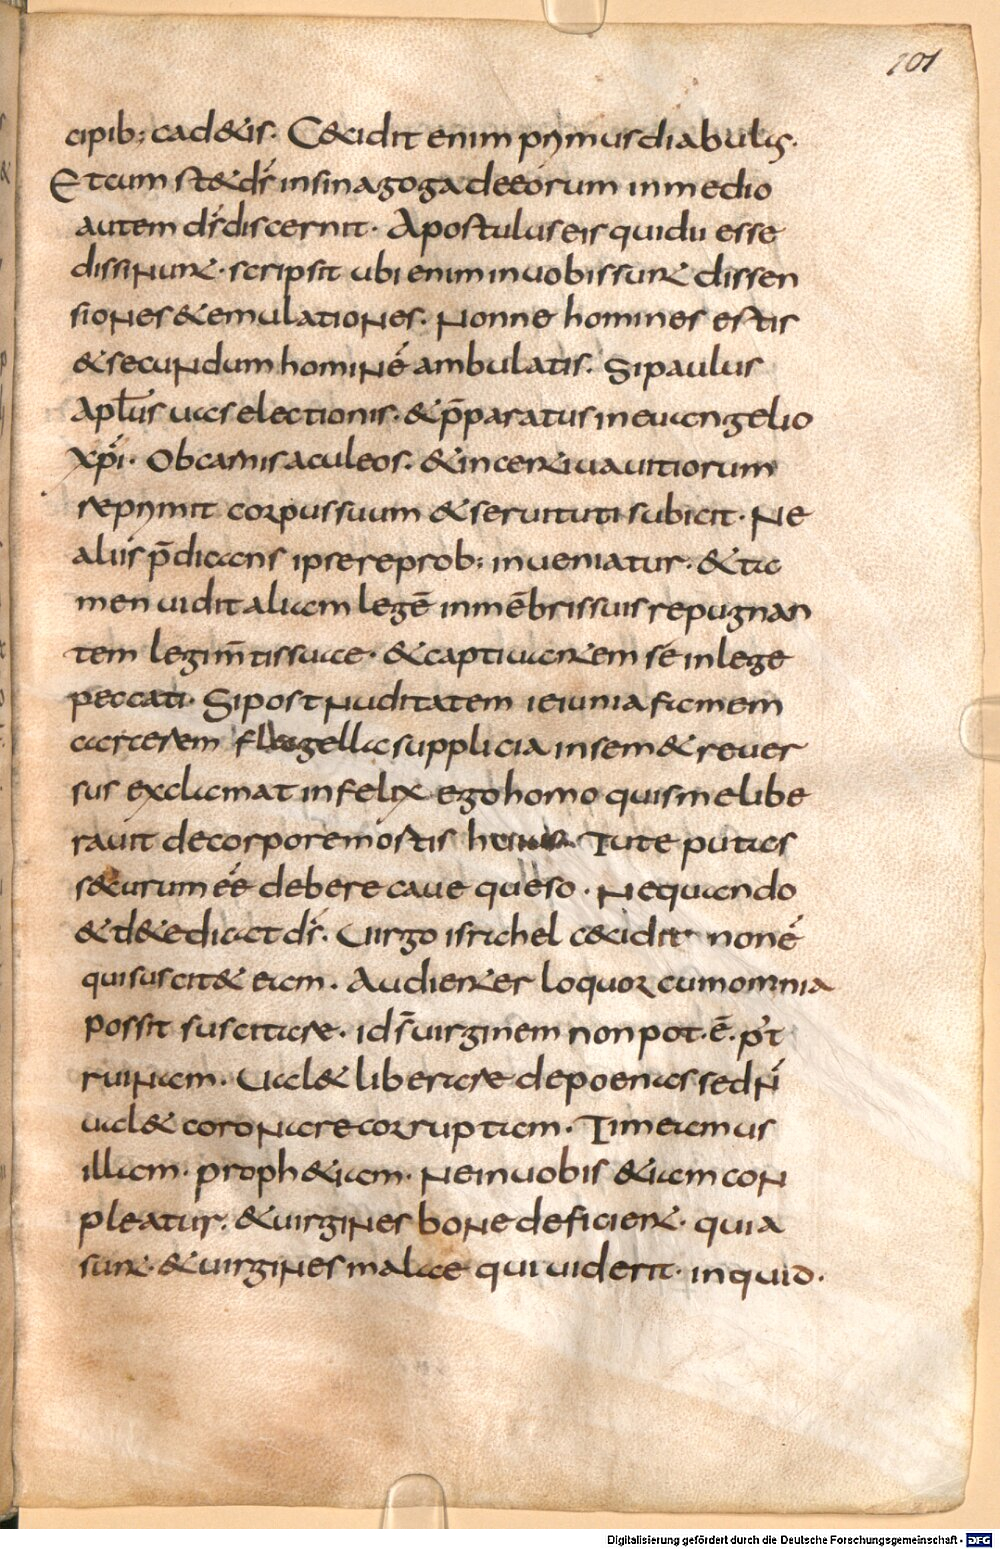 101
cipib; cad&is. C&cidit enim prymus diabulus.
Et cum st&ds in sinagoga deeorum in medio
autem ds discernit. Apostulus eis qui dii esse
dissinunt. scripsit ubi enim in uobis sunt dissen
siones & emulationes. Nonne homines estis
& secundum hominē ambulatis. Si paulus
Aplus uas electionis. & p̄paratus in euangelio
xpi. Ob carnis aculeos. & incentiua uitiorum
reprymit corpus suum & seruituti subicit. Ne
aliis p̄dicans ipse reprob; inueniatur. & ta
men uidit aliam legē in mēbris suis repugnan
tem legi m̄tis suae. & captiuantem se in lege
peccati. Si post nuditatem ieiunia famem
carcerem flagella supplicia insem& reuer
sus exclamat infelix ego homo quis me libe
rauit de corpore mortis huius. Tu te putas
securum eē debere caue queso. Nequando
& d&e dicat ds. Uirgo israhel c&cidit non ē
qui suscit& eam. Audienter loquor cum omnia
possit suscitare. id s̄ uirginem non pot. ē. p't
ruinam. Ual& liberare de poenas sed n̄
ual& coronare corruptam. Timeamus
illam. proph&iam. Ne in uobis &iam con
pleatur. & uirgines bone deficient. quia
sunt. & uirgines malae qui uiderit. inquid.
Digitalisierung gefördert durch die Deutsche Forschungsgemeinschaft - DFG